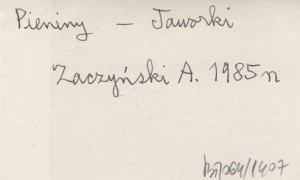 Pieniny – Jaworki
Zaczyński A. 1985 n
/1407